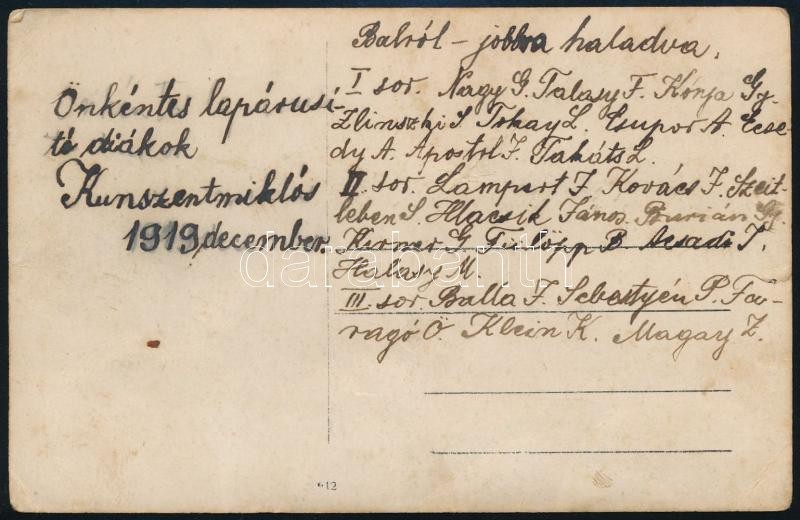 Önkéntes lapárusí-
tó diákok
Kunszentmiklós
1919 december.
Balról – jobbra haladva.
I sor. Nagy G. Talasy F. Kónja Gy.
Zlinszki S. Tokay L. Csupor A. Ecse-
dy A. Apostol J. Takáts L.
II. sor. Lampert J. Kovács J. Szeit-
leben S. Hlacsik János. Burián Gy.
Kirner G. Fülöpp B. Acsádi I.
Halasy M.
III. sor. Balla F. Sebestyén P. Fa-
ragó Ö. Klein K. Magay Z.
612
darabanth